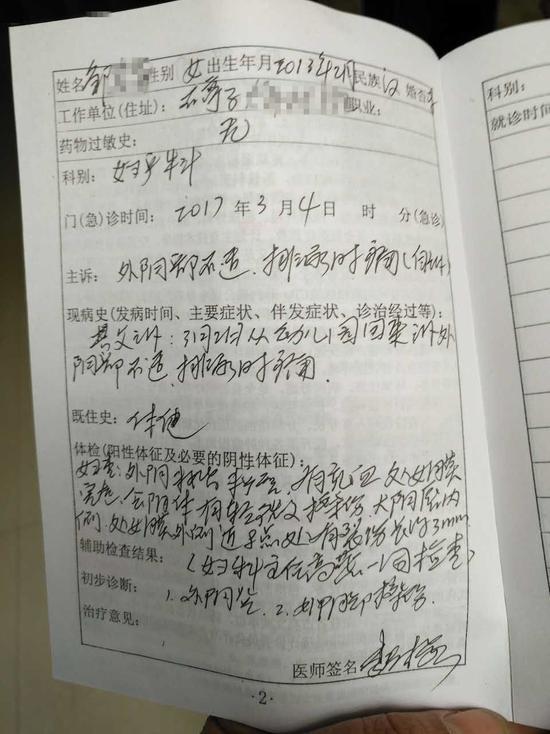 姓名 邹 性别 女 出生年月 2013年2月 民族 汉 婚否
工作单位(住址): 石 子 职业:
药物过敏史: 无
科别: 妇产科
门(急)诊时间: 2017 年 3 月 4 日 时 分(急诊)
主诉: 外阴部不适、排尿时疼痛
现病史(发病时间、主要症状、伴发症状、诊治经过等):
其父诉: 3月2日从幼儿园回家诉外
阴部不适、排尿时疼痛.
既住史: 体健
体检(阳性体征及必要的阴性体征):
妇查: 外阴 处女膜
完整. 会阴体有轻微 擦伤 大阴唇内
侧. 处女膜外侧近 点处有裂伤长约3mm
辅助检查结果: (妇科主任高 一同检查)
初步诊断: 1. 外阴炎. 2. 外阴部擦伤.
治疗意见:
医师签名
·2·
科别:
就诊时间